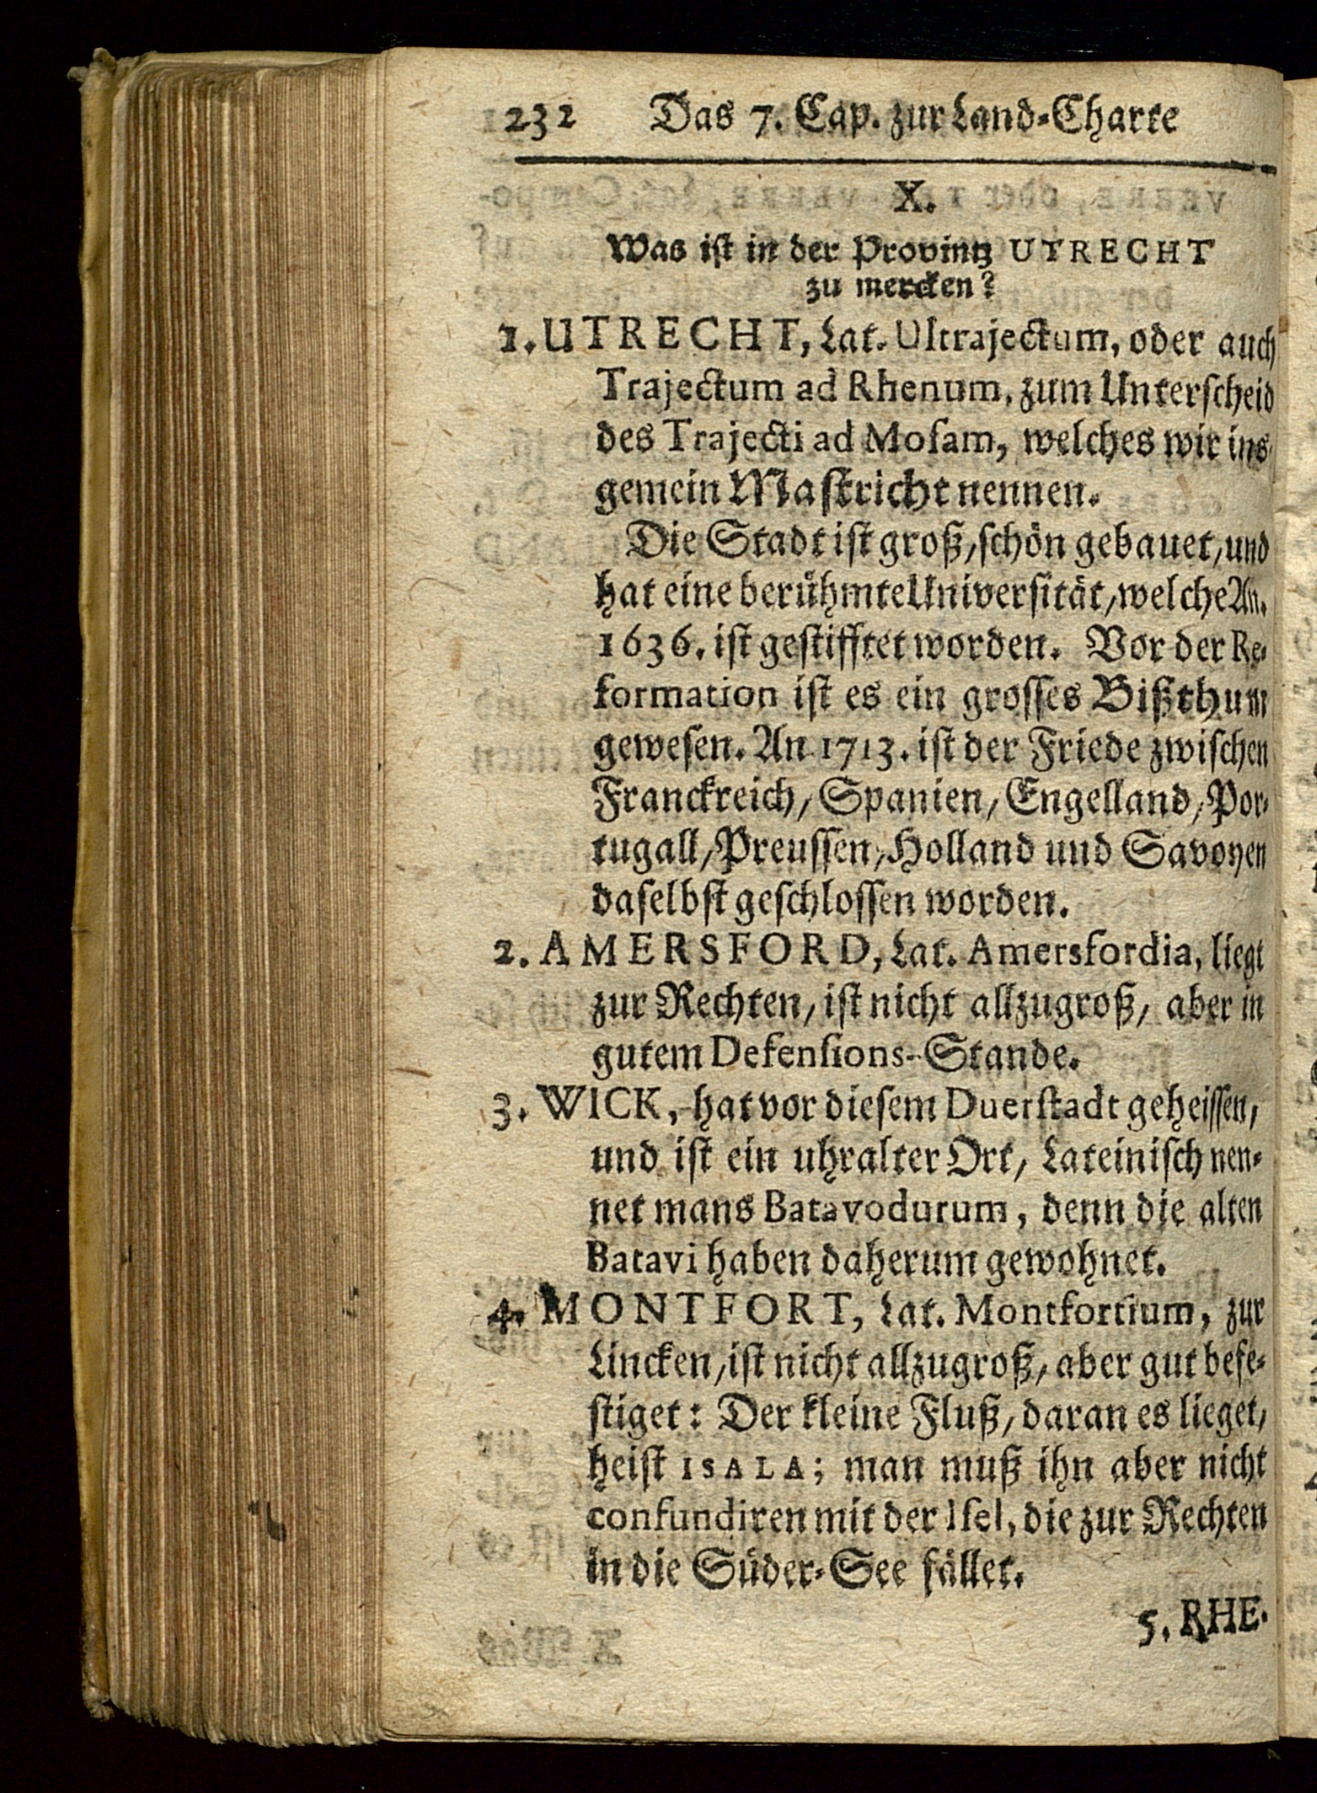 232 Das 7. Cap. zur Land-Charte
X.
Was ist in der Provintz UTRECHT
zu mercken?
1. UTRECHT, Lat. Ultrajectum, oder auch
Trajectum ad Rhenum, zum Unterscheid
des Trajecti ad Mosam, welches wir ins-
gemein Mastricht nennen.
Die Stadt ist groß/ schön gebauet/ und
hat eine berühmte Universität/ welche An.
1636. ist gestifftet worden. Vor der Re-
formation ist es ein grosses Bißthum
gewesen. An 1713. ist der Friede zwischen
Franckreich/ Spanien/ Engelland/ Por-
tugall/ Preussen/ Holland und Savoyen
daselbst geschlossen worden.
2. AMERSFORD, Lat. Amersfordia, liegt
zur Rechten/ ist nicht allzugroß/ aber in
gutem Defensions-Stande.
3. WICK, hat vor diesem Duerstadt geheissen/
und ist ein uhralter Ort/ Lateinisch nen-
net mans Batavodurum, denn die alten
Batavi haben daherum gewohnet.
4. MONTFORT, Lat. Montfortium, zur
Lincken/ ist nicht allzugroß/ aber gut befe-
stiget: Der kleine Fluß/ daran es lieget/
heist ISALA; man muß ihn aber nicht
confundiren mit der Isel, die zur Rechten
in die Süder-See fället.
5. RHE-